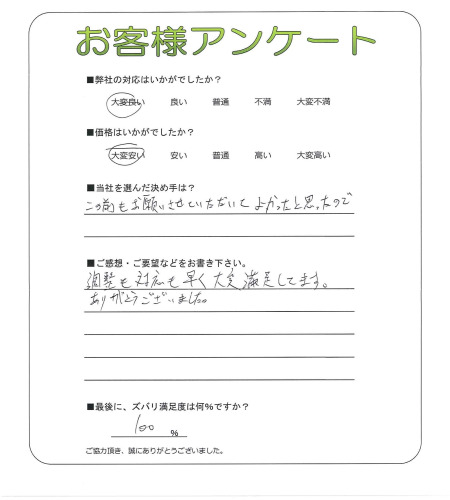 お客様アンケート
■弊社の対応はいかがでしたか？
大変良い 良い 普通 不満 大変不満
■価格はいかがでしたか？
大変安い 安い 普通 高い 大変高い
■当社を選んだ決め手は？
この前もお願いさせていただいてよかったと思ったので
■ご感想・ご要望などをお書き下さい。
調整も対応も早く大変満足してます。
ありがとうございました。
■最後に、ズバリ満足度は何％ですか？
100 ％
ご協力頂き、誠にありがとうございました。